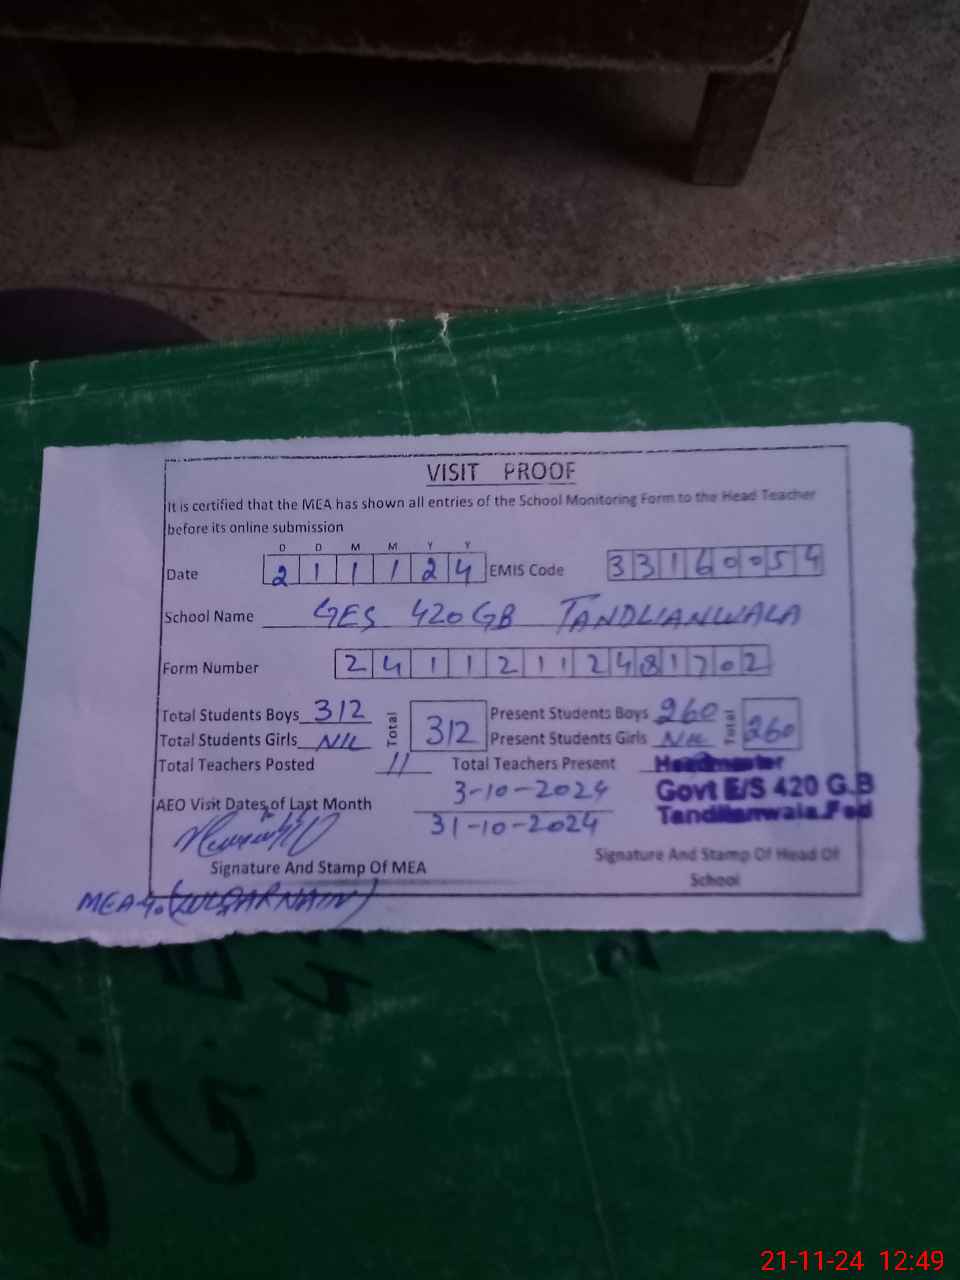 VISIT PROOF
It is certified that the MEA has shown all entries of the School Monitoring Form to the Head Teacher
before its online submission
D D M M Y Y
Date 2 1 1 1 2 4 EMIS Code 3 3 1 6 0 0 5 4
School Name GES 420 GB TANDLIANWALA
Form Number 2 4 1 1 2 1 1 2 4 8 1 7 0 2
Total Students Boys 312 Total 312 Present Students Boys 260 Total 260
Total Students Girls NIL Present Students Girls NIL
Total Teachers Posted 11 Total Teachers Present
Headmaster
Govt E/S 420 G.B
Tandlianwala.Fsd
AEO Visit Dates of Last Month 3-10-2024
31-10-2024
Signature And Stamp Of MEA
Signature And Stamp Of Head Of
School
MEA (ZULQARNAIN)
21-11-24 12:49